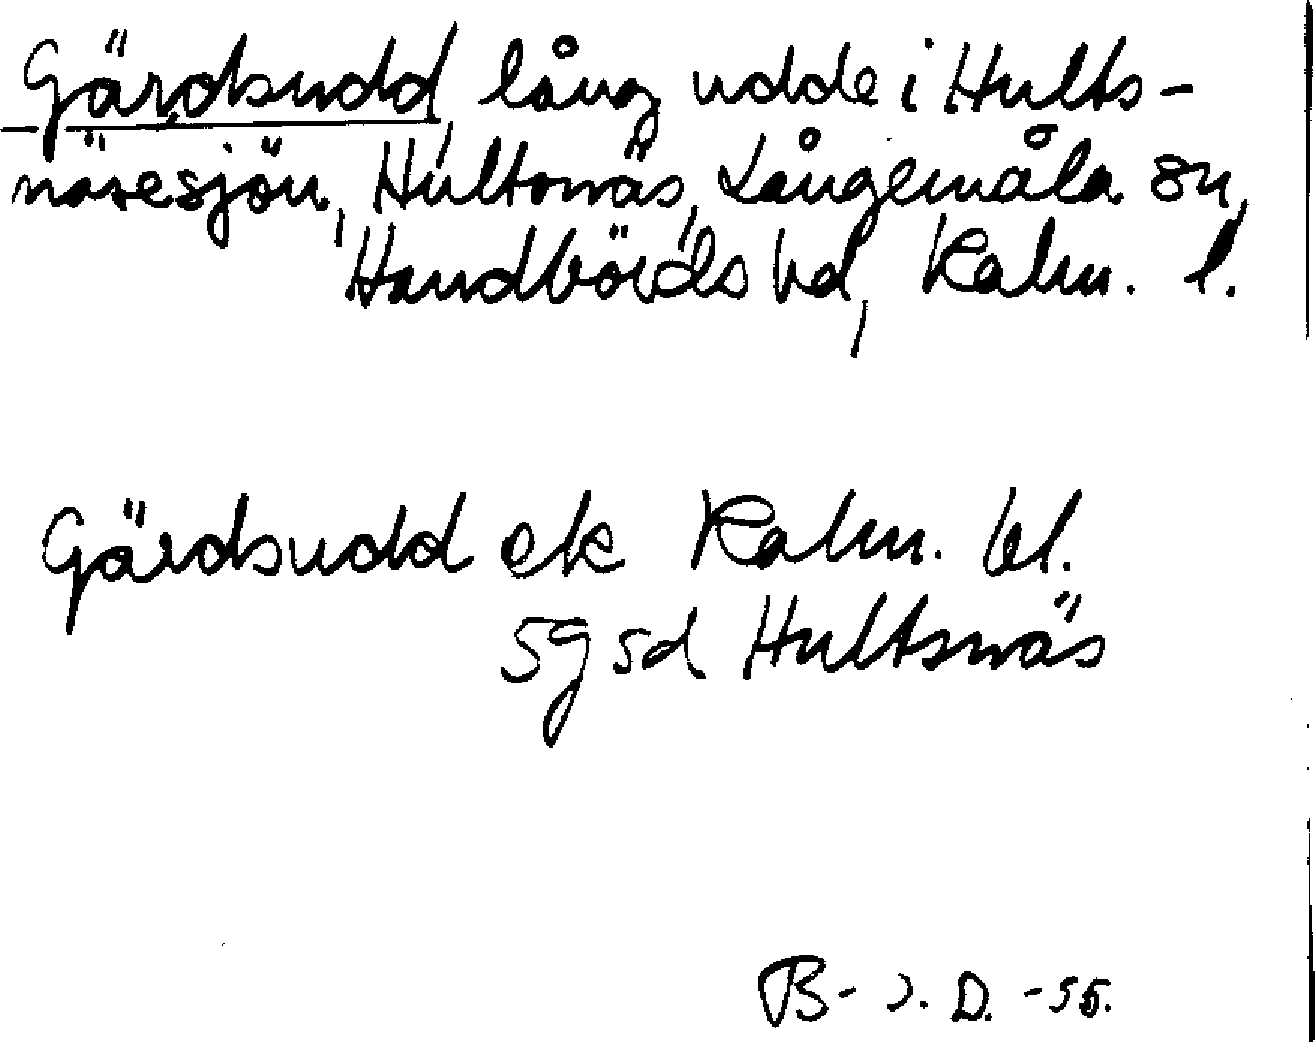 Gärdsudd, lång udde i Hults-
näsesjön, Hultsnäs, Långemåla sn,
Handbörds hd, Kalm. l.
Gärdsudd ek Kalm. bl.
5g sd Hultsnäs
B-J. D. -56.